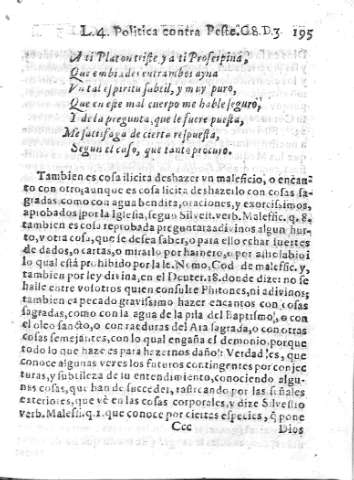 L. 4. Politica contra Peste. C. 8. D. 3. 195
A ti Platon triste y a ti Proserpina,
Que embiades entrambos ayna
Vn tal espiritu subtil, y muy puro,
Que en este mal cuerpo me hable seguro,
Y de la pregunta, que le fuere puesta,
Me satisfaga de cierta respuesta,
Segun el caso, que tanto procuro.
Tambien es cosa ilicita deshazer vn maleficio, o encan-
to con otro, aunque es cosa licita deshazello con cosas sa-
gradas como con agua bendita, oraciones, y exorcismos,
aprobados por la Iglesia, segun Silvest. verb. Malefic. q. 8,
tambien es cosa reprobada preguntar a adivinos algun hur-
to, v otra cosa, que se desea saber, o para ello echar suertes
de dados, o cartas, o mirarlo por harnero, o por astrolabio:
lo qual està prohibido por la l. Nemo, Cod. de malefic. y,
tambien por ley divina, en el Deuter. 18. donde dize: no se
halle entre vosotros quien consulte Phitones, ni adivinos;
tambien es pecado gravissimo hazer encantos con cosas
sagradas, como con la agua de la pila del Baptismo, o con
el oleo sancto, o con raeduras del Ara sagrada, o con otras
cosas semejantes, con lo qual engaña el demonio, porque
todo lo que haze es para hazernos daño: Verdad es, que
conoce algunas veces los futuros contingentes por conjec
turas, y subtileza de su entendimiento, conociendo algu-
nas cosas, que han de succeder, rastreando por las señales
exteriores, que vè en las cosas corporales, y dize Silvestro
verb. Malefi. q. 1. que conoce por ciertas especies, q̃ pone
Ccc Dios